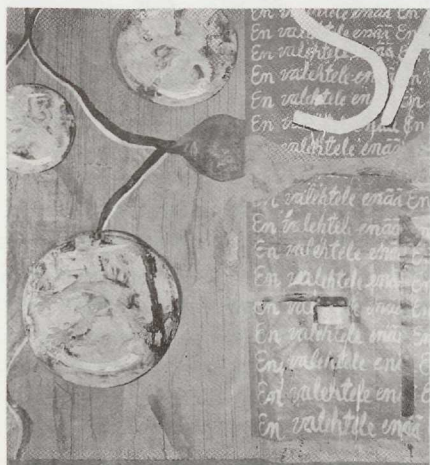 En valehtele enää En
En valehtele enää
En valehtele enää
En valehtele
En valehtele
En valehtele enää En
valehtele enää
SA
En valehtele enää En
En valehtele enää
En valehtele enää
En valehtele enää
En
En valehtele
En valehtele enää
En valehtele enää
En valehtele enää
En valehtele enää